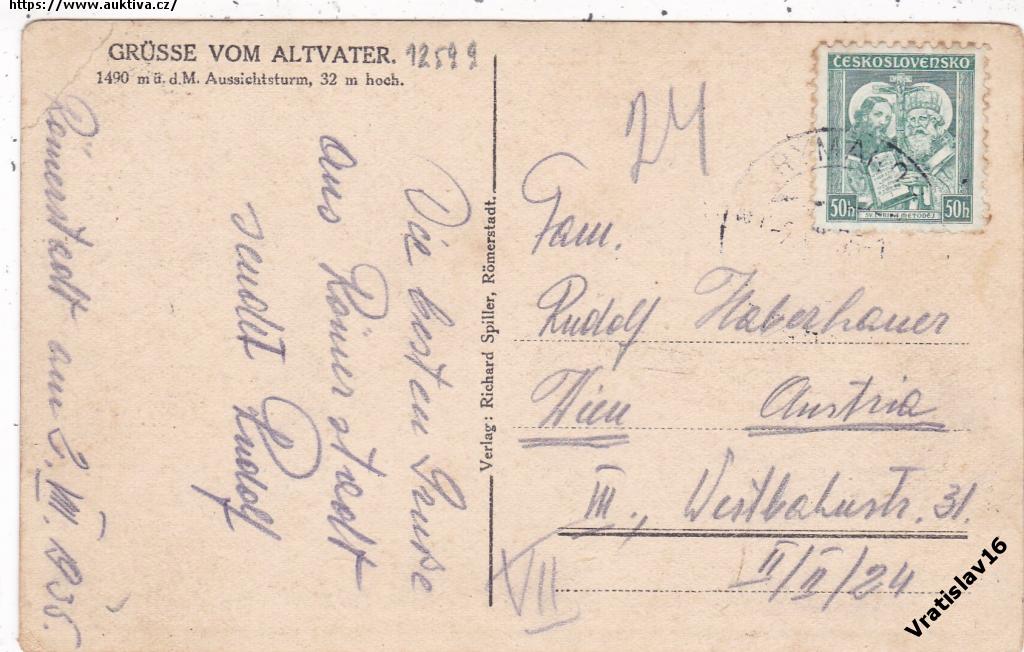 https://www.auktiva.cz/
GRÜSSE VOM ALTVATER. 12599
1490 m ü. d. M. Aussichtsturm, 32 m hoch.
Römerstadt am 2. VIII. 1935.
Die besten Grüße
aus Römerstadt
sendet Rudolf
Verlag: Richard Spiller, Römerstadt.
24
ČESKOSLOVENSKO
50h
SV. CYRIL A METODĚJ
50h
RÝMAŘO
Fam.
Rudolf Haberhauer
Wien Austria
III., Westbahnstr. 31.
II/II/24
VII
Vratislav16